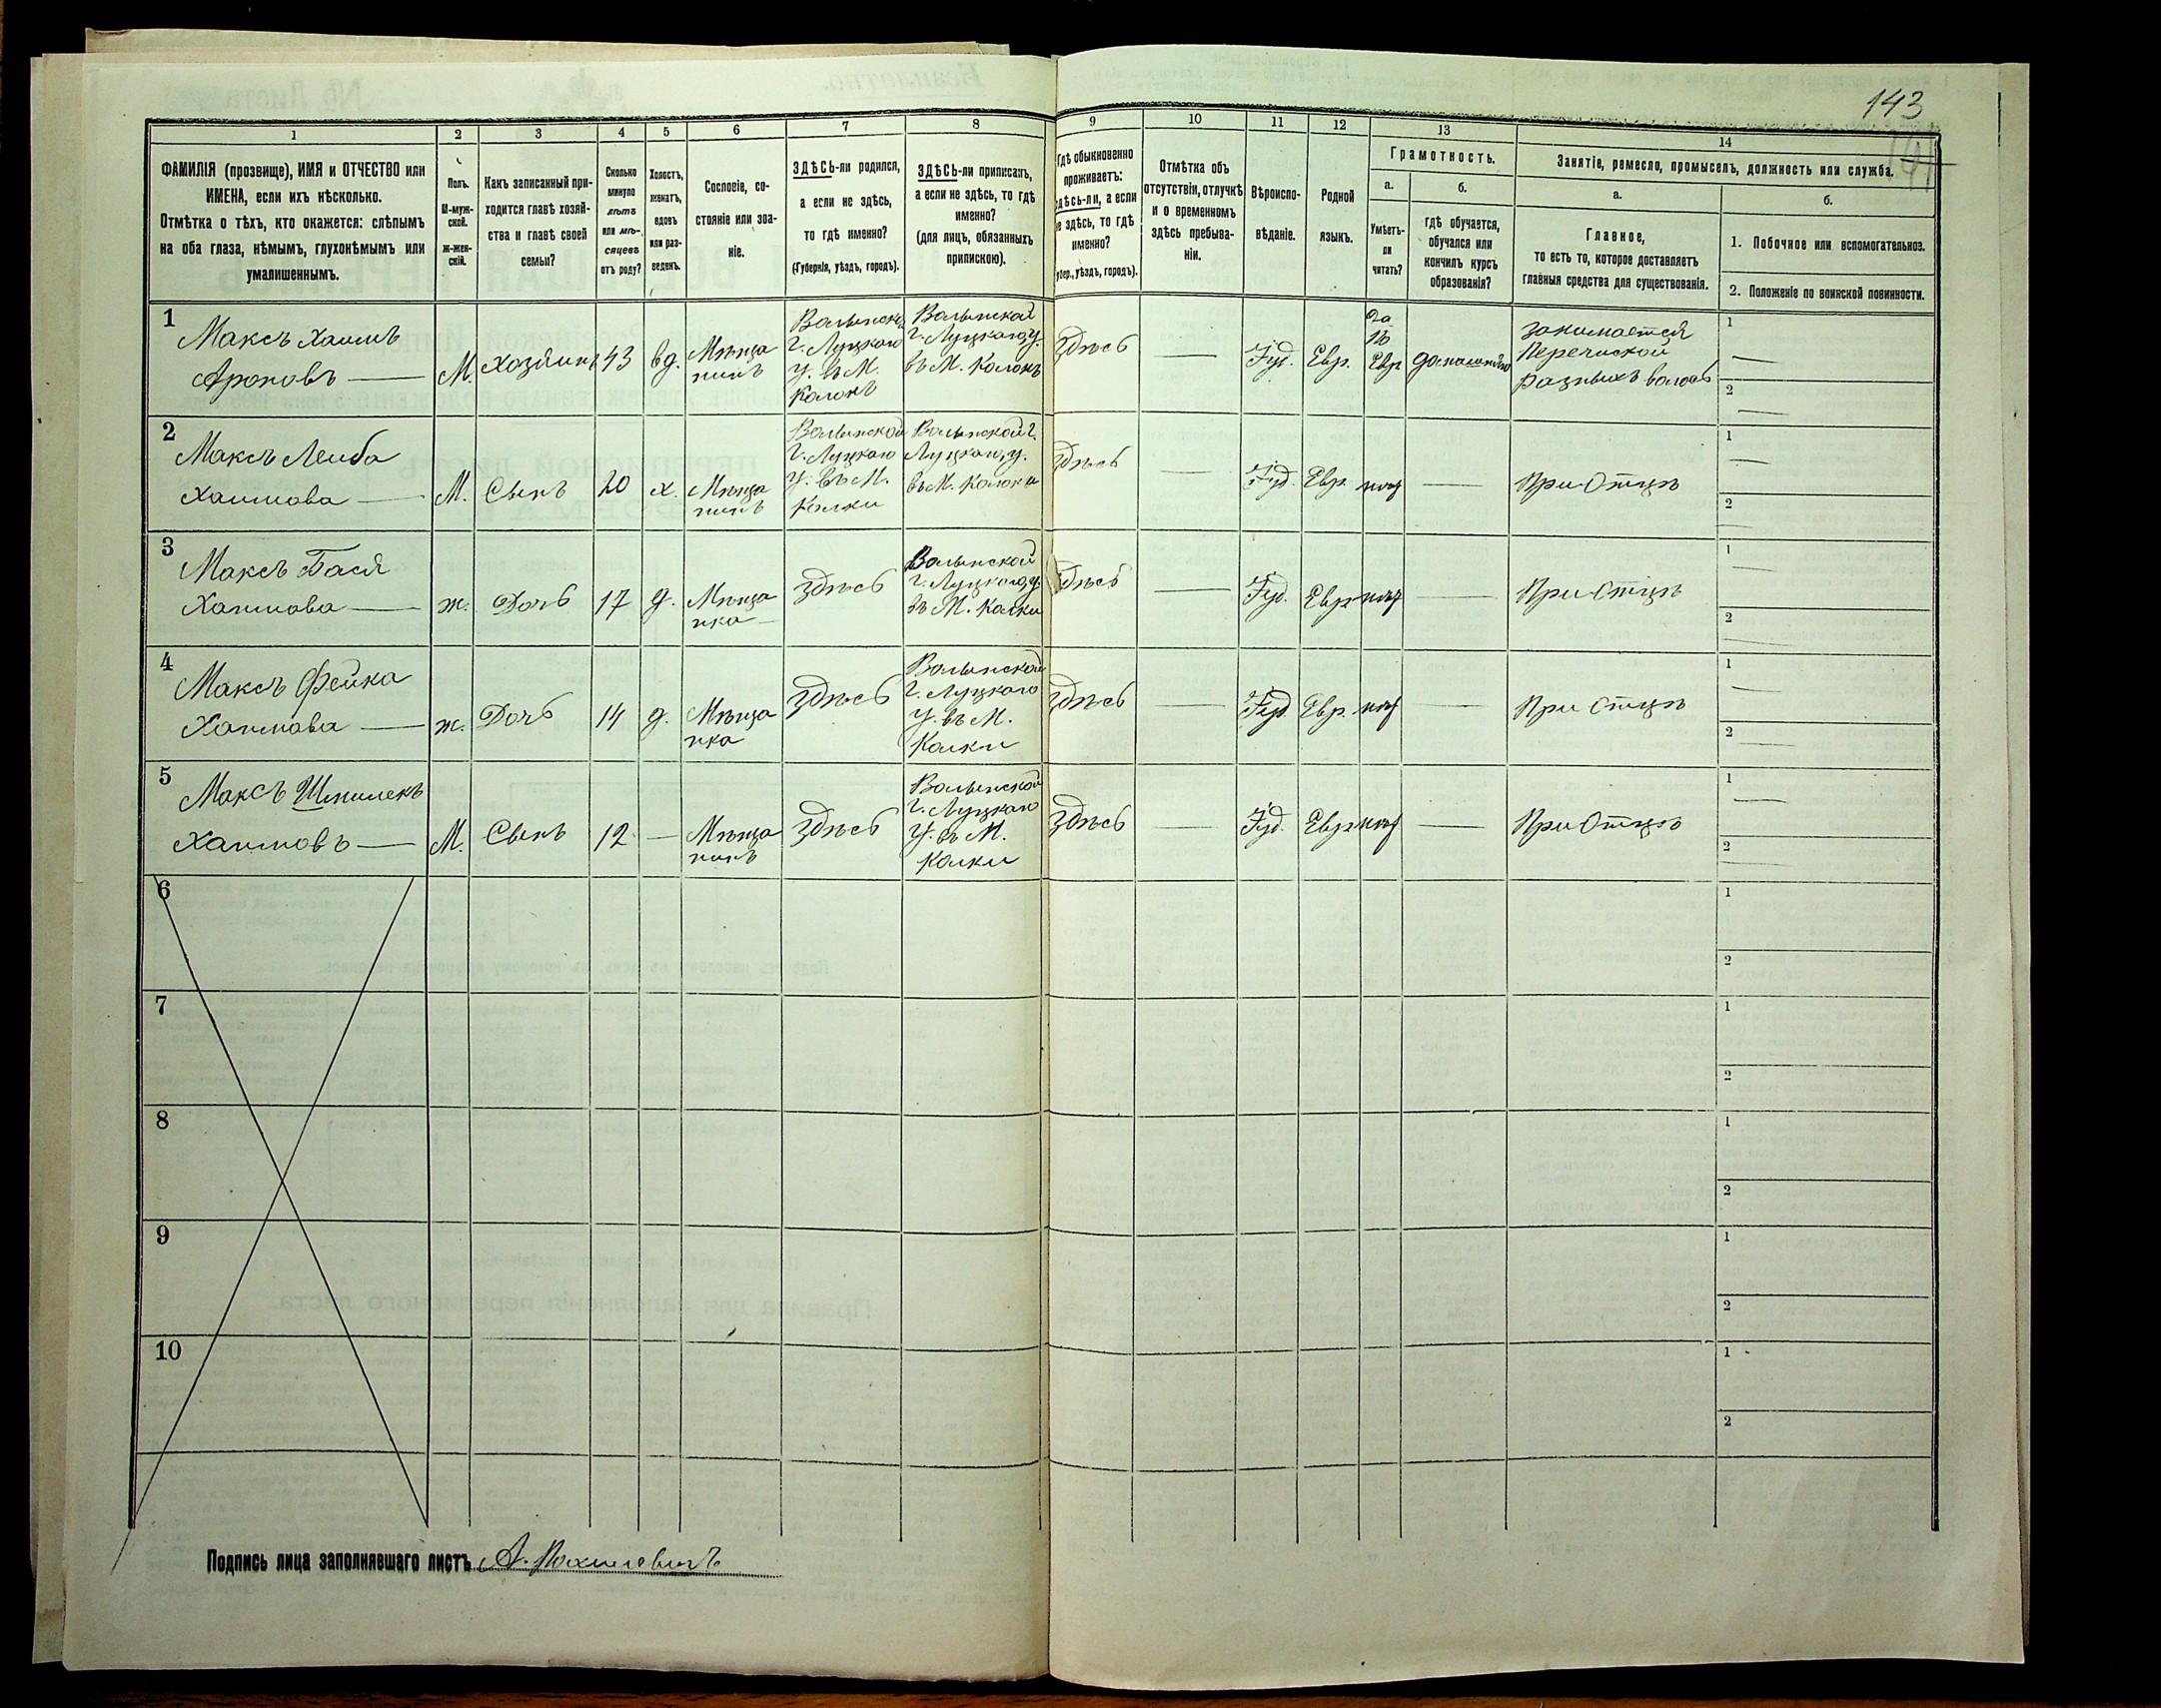 143
1 2 3 4 5 6 7 8 9 10 11 12 13 14
ФАМИЛІЯ (прозвище), ИМЯ и ОТЧЕСТВО или
ИМЕНА, если ихъ нѣсколько.
Отмѣтка о тѣхъ, кто окажется: слѣпымъ
на оба глаза, нѣмымъ, глухонѣмымъ или
умалишеннымъ.
Полъ.
М-муж-
ской.
ж-жен-
скій.
Какъ записанный при-
ходится главѣ хозяй-
ства и главѣ своей
семьи?
Сколько
минуло
лѣтъ
или мѣ-
сяцевъ
отъ роду?
Холостъ,
женатъ,
вдовъ
или раз-
веденъ.
Сословіе, со-
стояніе или зва-
ніе.
ЗДѢСЬ-ли родился,
а если не здѣсь,
то гдѣ именно?
(Губернія, уѣздъ, городъ).
ЗДѢСЬ-ли приписанъ,
а если не здѣсь, то гдѣ
именно?
(для лицъ, обязанныхъ
припискою).
Гдѣ обыкновенно
проживаетъ:
здѣсь-ли, а если
не здѣсь, то гдѣ
именно?
(Губер., уѣздъ, городъ).
Отмѣтка объ
отсутствіи, отлучкѣ
и о временномъ
здѣсь пребыва-
ніи.
Вѣроиспо-
вѣданіе.
Родной
языкъ.
Грамотность.
а.
Умѣетъ-
ли
читать?
б.
гдѣ обучается,
обучался или
кончилъ курсъ
образованія?
Занятіе, ремесло, промыселъ, должность или служба.
а.
Главное,
то есть то, которое доставляетъ
главныя средства для существованія.
б.
1. Побочное или вспомогательное.
2. Положеніе по воинской повинности.
1
Максъ Хаимъ
Ароновъ —
М.
Хозяинъ
43
вд.
Мѣща
нинъ
Волынской
г. Луцкаго
у. въ М.
Колонъ
Волынской
г. Луцкаго у.
въ М. Колонъ
Здѣсь
—
Іуд.
Евр.
Да
по
Евр
домашнѣ
занимается
Перепиской
разныхъ
1 —
2 —
2
Максъ Леиба
Хаимова —
М.
Сынъ
20
х.
Мѣща
нинъ
Волынской
г. Луцкаго
у. въ М.
Колки
Волынской г.
Луцкаго, у.
въ М. Колоки
Здѣсь
—
Іуд.
Евр.
—
При Отцѣ
1 —
2 —
3
Максъ Бася
Хаимова —
ж.
Дочь
17
д.
Мѣща
нка —
Здѣсь
Волынской
г. Луцкаго, у.
въ М. Колки
Здѣсь
—
Іуд.
Евр
—
При Отцѣ
1 —
2 —
4
Максъ Фейка
Хаимова —
ж.
Дочь
14
д.
Мѣща
нка
Здѣсь
Волынской
г. Луцкаго
у. въ М.
Колки
Здѣсь
—
Іуд.
Евр.
—
При Отцѣ
1 —
2 —
5
Максъ Шмилекъ
Хаимовъ —
М.
Сынъ
12
—
Мѣща
нинъ
Здѣсь
Волынской
г. Луцкаго
у. въ М.
Колки
Здѣсь
—
Іуд.
Евр
—
При Отцѣ
1 —
2 —
6
1
2
7
1
2
8
1
2
9
1
2
10
1
2
Подпись лица заполнявшаго листъ А.